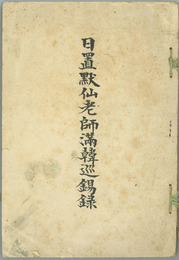 日置默仙老師滿韓巡錫錄